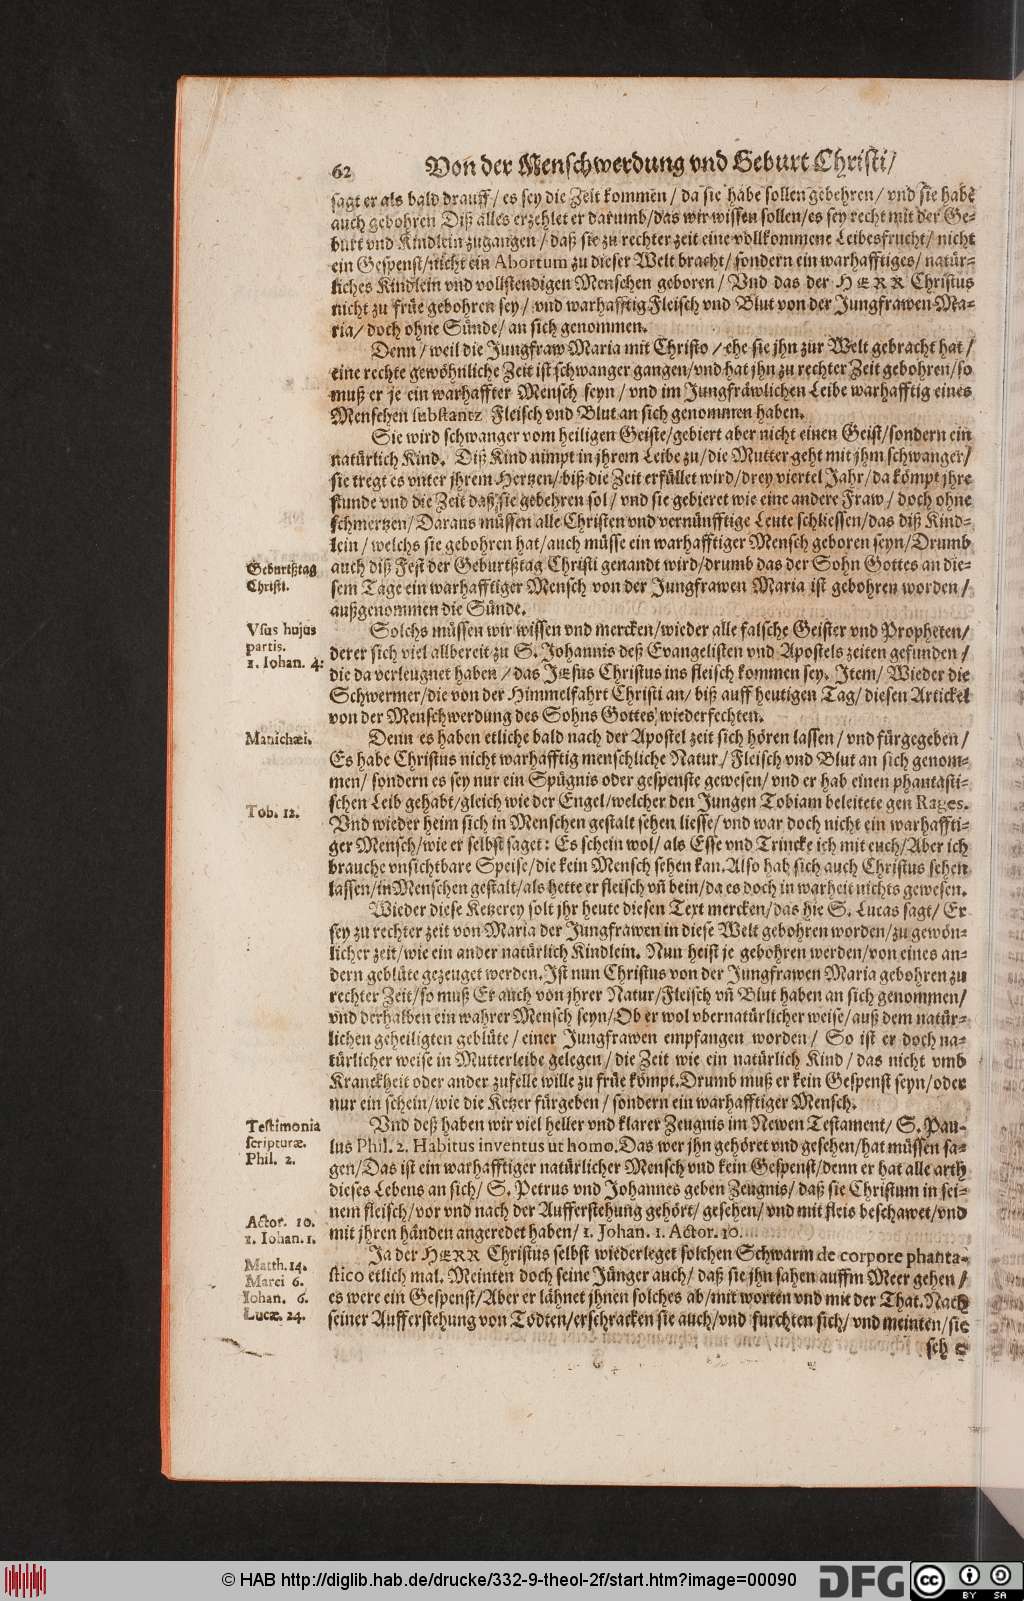 62 Von der Menschwerdung vnd Geburt Christi/
sagt er als bald drauff/ es sey die Zeit kommen/ da sie habe sollen gebehren/ vnd sie habe
auch gebohren Diß alles erzehlet er darumb/das wir wissen sollen/es sey recht mit der Ge-
burt vnd Kindlein zugangen/ daß sie zu rechter zeit eine vollkommene Leibesfrucht/ nicht
ein Gespenst/nicht ein Abortum zu dieser Welt bracht/ sondern ein warhafftiges/ natür-
liches Kindlein vnd vollstendigen Menschen geboren/ Vnd das der HERR Christus
nicht zu früe gebohren sey/ vnd warhafftig Fleisch vnd Blut von der Jungfrawen Ma-
ria/ doch ohne Sünde/ an sich genommen.
Denn/ weil die Jungfraw Maria mit Christo/ ehe sie jhn zur Welt gebracht hat/
eine rechte gewöhnliche Zeit ist schwanger gangen/vnd hat jhn zu rechter Zeit gebohren/so
muß er je ein warhaffter Mensch seyn/ vnd im Jungfräwlichen Leibe warhafftig eines
Menschen substantz Fleisch vnd Blut an sich genommen haben.
Sie wird schwanger vom heiligen Geiste/gebiert aber nicht einen Geist/sondern ein
natürlich Kind. Diß Kind nimpt in jhrem Leibe zu/ die Mutter geht mit jhm schwanger/
sie tregt es vnter jhrem Hertzen/ biß die Zeit erfüllet wird/ drey viertel Jahr/ da kömpt jhre
stunde vnd die Zeit daß sie gebehren sol/ vnd sie gebieret wie eine andere Fraw/ doch ohne
schmertzen/ Daraus müssen alle Christen vnd vernünfftige Leute schliessen/das diß Kind-
lein/ welchs sie gebohren hat/auch müsse ein warhafftiger Mensch geboren seyn/Drumb
Geburtßtag Christi.
auch diß Fest der Geburtßtag Christi genandt wird/drumb das der Sohn Gottes an die-
sem Tage ein warhafftiger Mensch von der Jungfrawen Maria ist gebohren worden/
außgenommen die Sünde.
Vsus hujus partis.
1. Iohan. 4:
Solchs müssen wir wissen vnd mercken/wieder alle falsche Geister vnd Propheten/
derer sich viel allbereit zu S. Johannis deß Evangelisten vnd Apostels zeiten gefunden/
die da verleugnet haben/ das JEsus Christus ins fleisch kommen sey. Item/ Wieder die
Schwermer/die von der Himmelfahrt Christi an/ biß auff heutigen Tag/ diesen Artickel
von der Menschwerdung des Sohns Gottes wiederfechten.
Manichæi.
Denn es haben etliche bald nach der Apostel zeit sich hören lassen/ vnd fürgegeben/
Es habe Christus nicht warhafftig menschliche Natur/ Fleisch vnd Blut an sich genom-
men/ sondern es sey nur ein Spügnis oder gespenste gewesen/ vnd er hab einen phantasti-
schen Leib gehabt/gleich wie der Engel/welcher den Jungen Tobiam beleitete gen Rages.
Tob. 12.
Vnd wieder heim sich in Menschen gestalt sehen liesse/ vnd war doch nicht ein warhaffti-
ger Mensch/wie er selbst saget: Es schein wol/ als Esse vnd Trincke ich mit euch/Aber ich
brauche vnsichtbare Speise/die kein Mensch sehen kan. Also hab sich auch Christus sehen
lassen/in Menschen gestalt/als hette er fleisch vñ bein/da es doch in warheit nichts gewesen.
Wieder diese Ketzerey solt jhr heute diesen Text mercken/das hie S. Lucas sagt/ Er
sey zu rechter zeit von Maria der Jungfrawen in diese Welt gebohren worden/zu gewön-
licher zeit/wie ein ander natürlich Kindlein. Nun heist je gebohren werden/von eines an-
dern geblüte gezeuget werden. Ist nun Christus von der Jungfrawen Maria gebohren zu
rechter Zeit/so muß Er auch von jhrer Natur/Fleisch vñ Blut haben an sich genommen/
vnd derhalben ein wahrer Mensch seyn/Ob er wol vbernatürlicher weise/auß dem natür-
lichen geheiligten geblüte/ einer Jungfrawen empfangen worden/ So ist er doch na-
türlicher weise in Mutterleibe gelegen/ die Zeit wie ein natürlich Kind/ das nicht vmb
Kranckheit oder ander zufelle wille zu früe kömpt. Drumb muß er kein Gespenst seyn/oder
nur ein schein/wie die Ketzer fürgeben/ sondern ein warhafftiger Mensch.
Testimonia scripturæ.
Phil. 2.
Vnd deß haben wir viel heller vnd klarer Zeugnis im Newen Testament/ S. Pau-
lus Phil. 2. Habitus inventus ut homo. Das wer jhn gehöret vnd gesehen/hat müssen sa-
gen/Das ist ein warhafftiger natürlicher Mensch vnd kein Gespenst/denn er hat alle arth
dieses Lebens an sich/ S. Petrus vnd Johannes geben Zeugnis/ daß sie Christum in sei-
nem fleisch/vor vnd nach der Aufferstehung gehört/ gesehen/ vnd mit fleis beschawet/vnd
Actor. 10.
1. Iohan. 1.
mit jhren händen angeredet haben/ 1. Johan. 1. Actor. 10.
Ja der HERR Christus selbst wiederleget solchen Schwarm de corpore phanta-
Matth. 14.
Marci 6.
Iohan. 6.
Lucæ. 24.
stico etlich mal. Meinten doch seine Jünger auch/ daß sie jhn sahen auffm Meer gehen/
es were ein Gespenst/Aber er lähnet jhnen solches ab/mit worten vnd mit der That. Nach
seiner Aufferstehung von Todten/erschracken sie auch/vnd furchten sich/ vnd meinten/sie
© HAB http://diglib.hab.de/drucke/332-9-theol-2f/start.htm?image=00090
DFG
cc BY SA